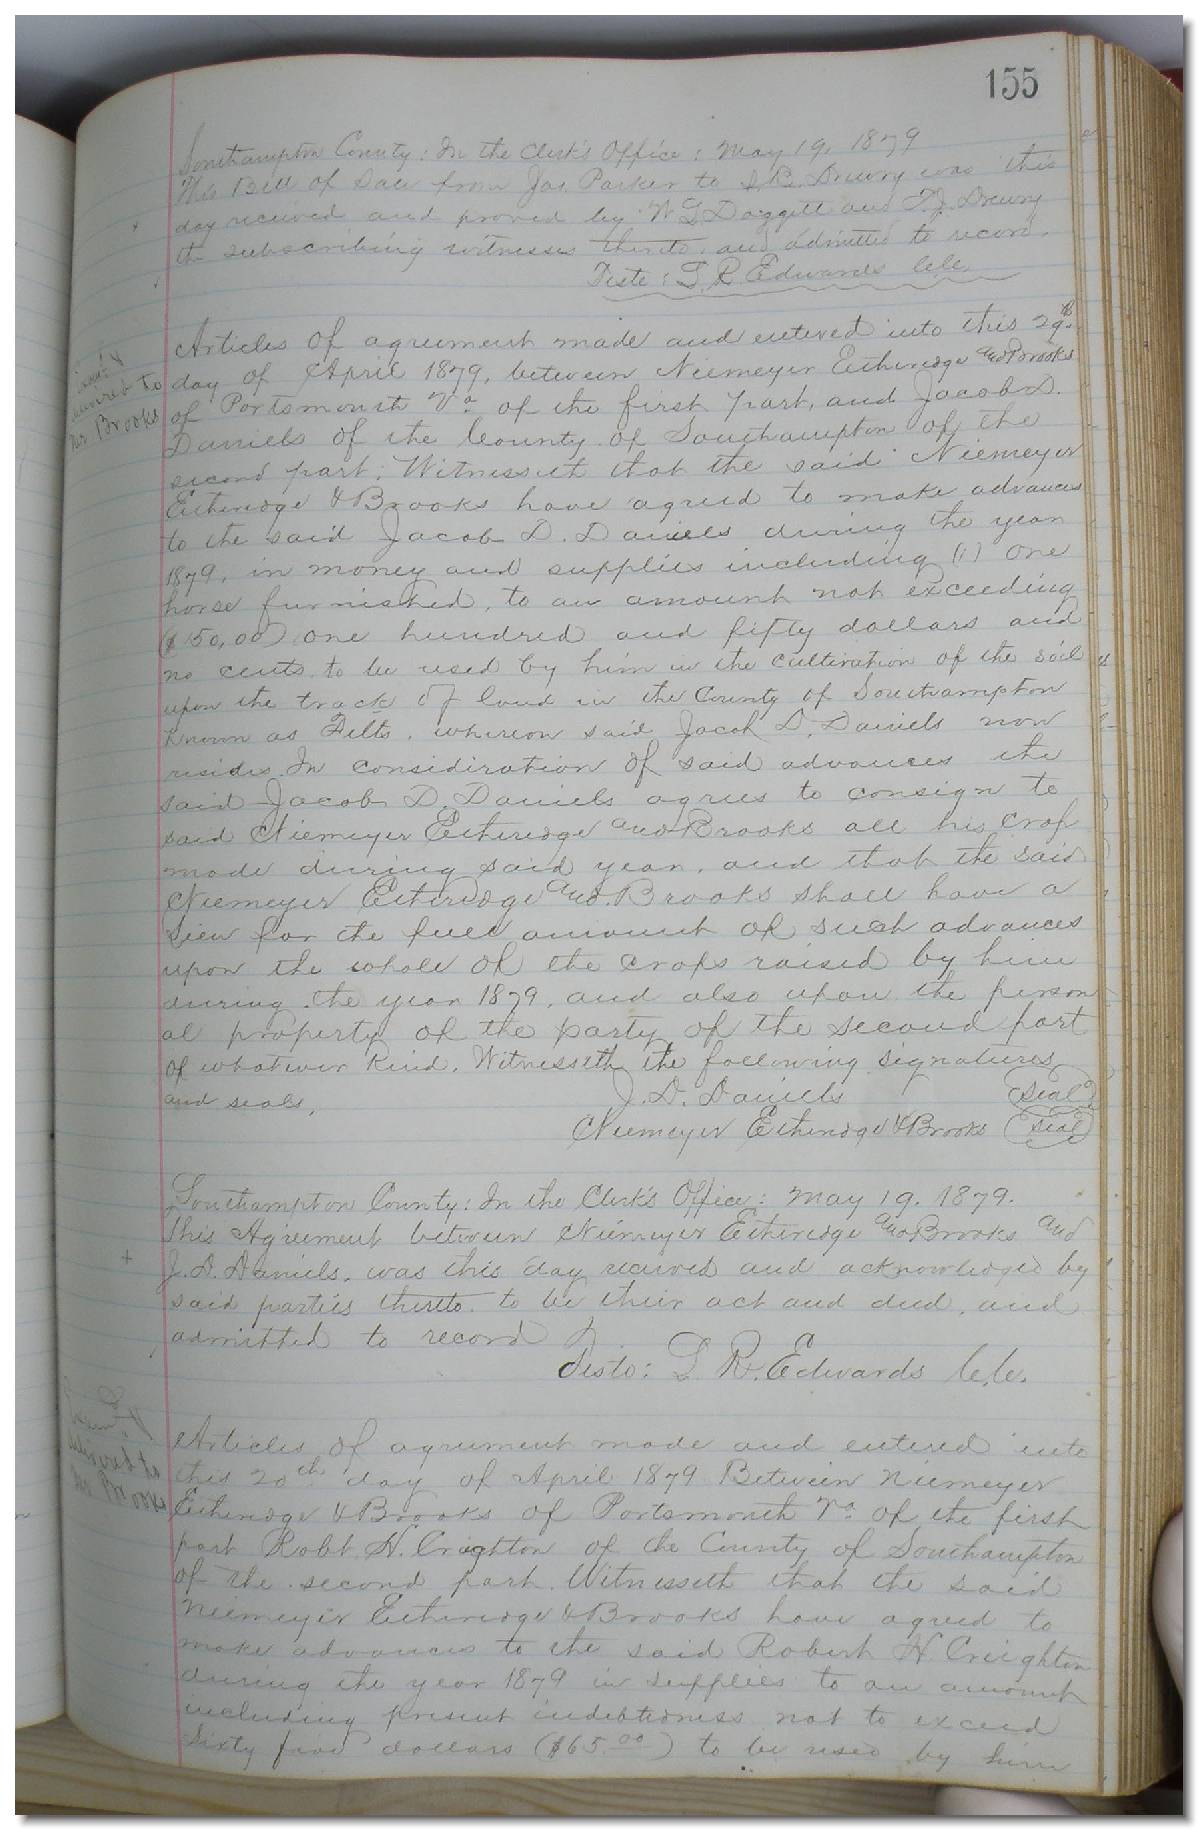 155
Southampton County: In the Clerk's Office: May 19. 1879
This Bill of Sale from Jas. Parker to Drewry was this
day received and proved by Daggett and T. J. Drewry
the subscribing witnesses thereto, and admitted to record.
Teste: L. R. Edwards C.C.
Articles of agreement made and entered into this 29th
day of April 1879, between Niemeyer Etheridge and Brooks
of Portsmouth Va of the first part, and Jacob D.
Daniels of the County of Southampton of the
second part: Witnesseth that the said Niemeyer
Etheridge & Brooks have agreed to make advances
to the said Jacob D. Daniels during the year
1879, in money and supplies including (1) one
horse furnished, to an amount not exceeding
($150,00) one hundred and fifty dollars and
no cents to be used by him in the cultivation of the soil
upon the track of land in the County of Southampton
known as Felts, whereon said Jacob D. Daniels now
resides. In consideration of said advances the
said Jacob D. Daniels agrees to consign to
said Niemeyer Etheridge and Brooks all his crop
made during said year, and that the said
Niemeyer Etheridge and Brooks shall have a
lien for the full amount of such advances
upon the whole of the crops raised by him
during the year 1879, and also upon the person
al property of the party of the second part
of whatever kind. Witnesseth the following signatures
and seals,
J. D. Daniels (Seal)
Niemeyer Etheridge & Brooks (Seal)
delivered to
Mr Brooks
Southampton County: In the Clerk's Office: May 19. 1879.
This Agreement between Niemeyer Etheridge and Brooks and
J. D. Daniels, was this day received and acknowledged by
said parties thereto to be their act and deed, and
admitted to record
Teste: L. R. Edwards C.C.
Articles of agreement made and entered into
this 20th day of April 1879 Between Niemeyer
Etheridge & Brooks of Portsmouth Va of the first
part Robt. H. Crichton of the County of Southampton
of the second part. Witnesseth that the said
Niemeyer Etheridge & Brooks have agreed to
make advances to the said Robert H Creighton
during the year 1879 in supplies to an amount
including present indebtedness not to exceed
Sixty five dollars ($65.00) to be used by him
delivered to
Mr Brooks